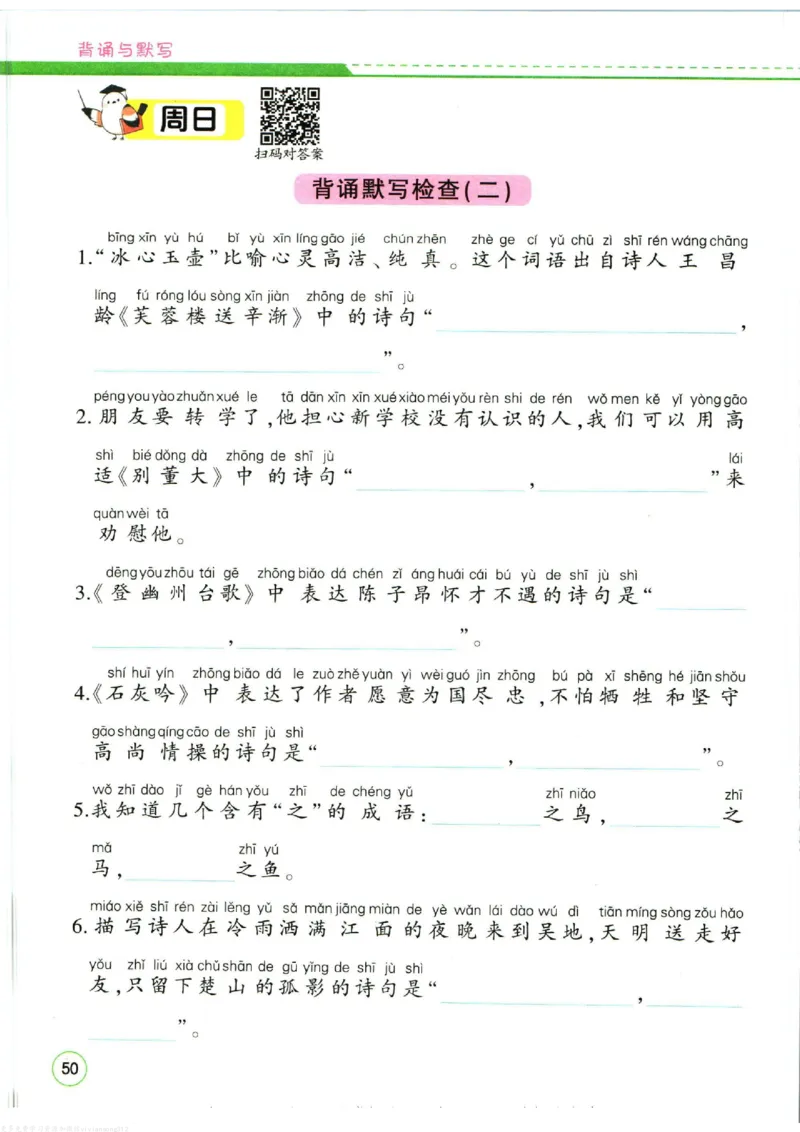 背诵与默写
周日
扫码对答案
背诵默写检查(二)
bīng xīn yù hú bǐ yù xīn líng gāo jié chún zhēn zhè ge cí yǔ chū zì shī rén wáng chāng
1.“冰心玉壶”比喻心灵高洁、纯真。这个词语出自诗人王昌
líng fú róng lóu sòng xīn jiàn zhōng de shī jù
龄《芙蓉楼送辛渐》中的诗句“ ,
”。
péng you yào zhuǎn xué le tā dān xīn xīn xué xiào méi yǒu rèn shi de rén wǒ men kě yǐ yòng gāo
2.朋友要转学了,他担心新学校没有认识的人,我们可以用高
shì bié dǒng dà zhōng de shī jù lái
适《别董大》中的诗句“ , ”来
quàn wèi tā
劝慰他。
dēng yōu zhōu tái gē zhōng biǎo dá chén zǐ áng huái cái bú yù de shī jù shì
3.《登幽州台歌》中表达陈子昂怀才不遇的诗句是“
, ”。
shí huī yín zhōng biǎo dá le zuò zhě yuàn yì wèi guó jìn zhōng bú pà xī shēng hé jiān shǒu
4.《石灰吟》中表达了作者愿意为国尽忠,不怕牺牲和坚守
gāo shàng qíng cāo de shī jù shì
高尚情操的诗句是“ , ”。
wǒ zhī dào jǐ gè hán yǒu zhī de chéng yǔ zhī niǎo zhī
5.我知道几个含有“之”的成语: 之鸟, 之
mǎ zhī yú
马, 之鱼。
miáo xiě shī rén zài lěng yǔ sǎ mǎn jiāng miàn de yè wǎn lái dào wú dì tiān míng sòng zǒu hǎo
6.描写诗人在冷雨洒满江面的夜晚来到吴地,天明送走好
yǒu zhǐ liú xià chǔ shān de gū yǐng de shī jù shì
友,只留下楚山的孤影的诗句是“ ,
”。
50